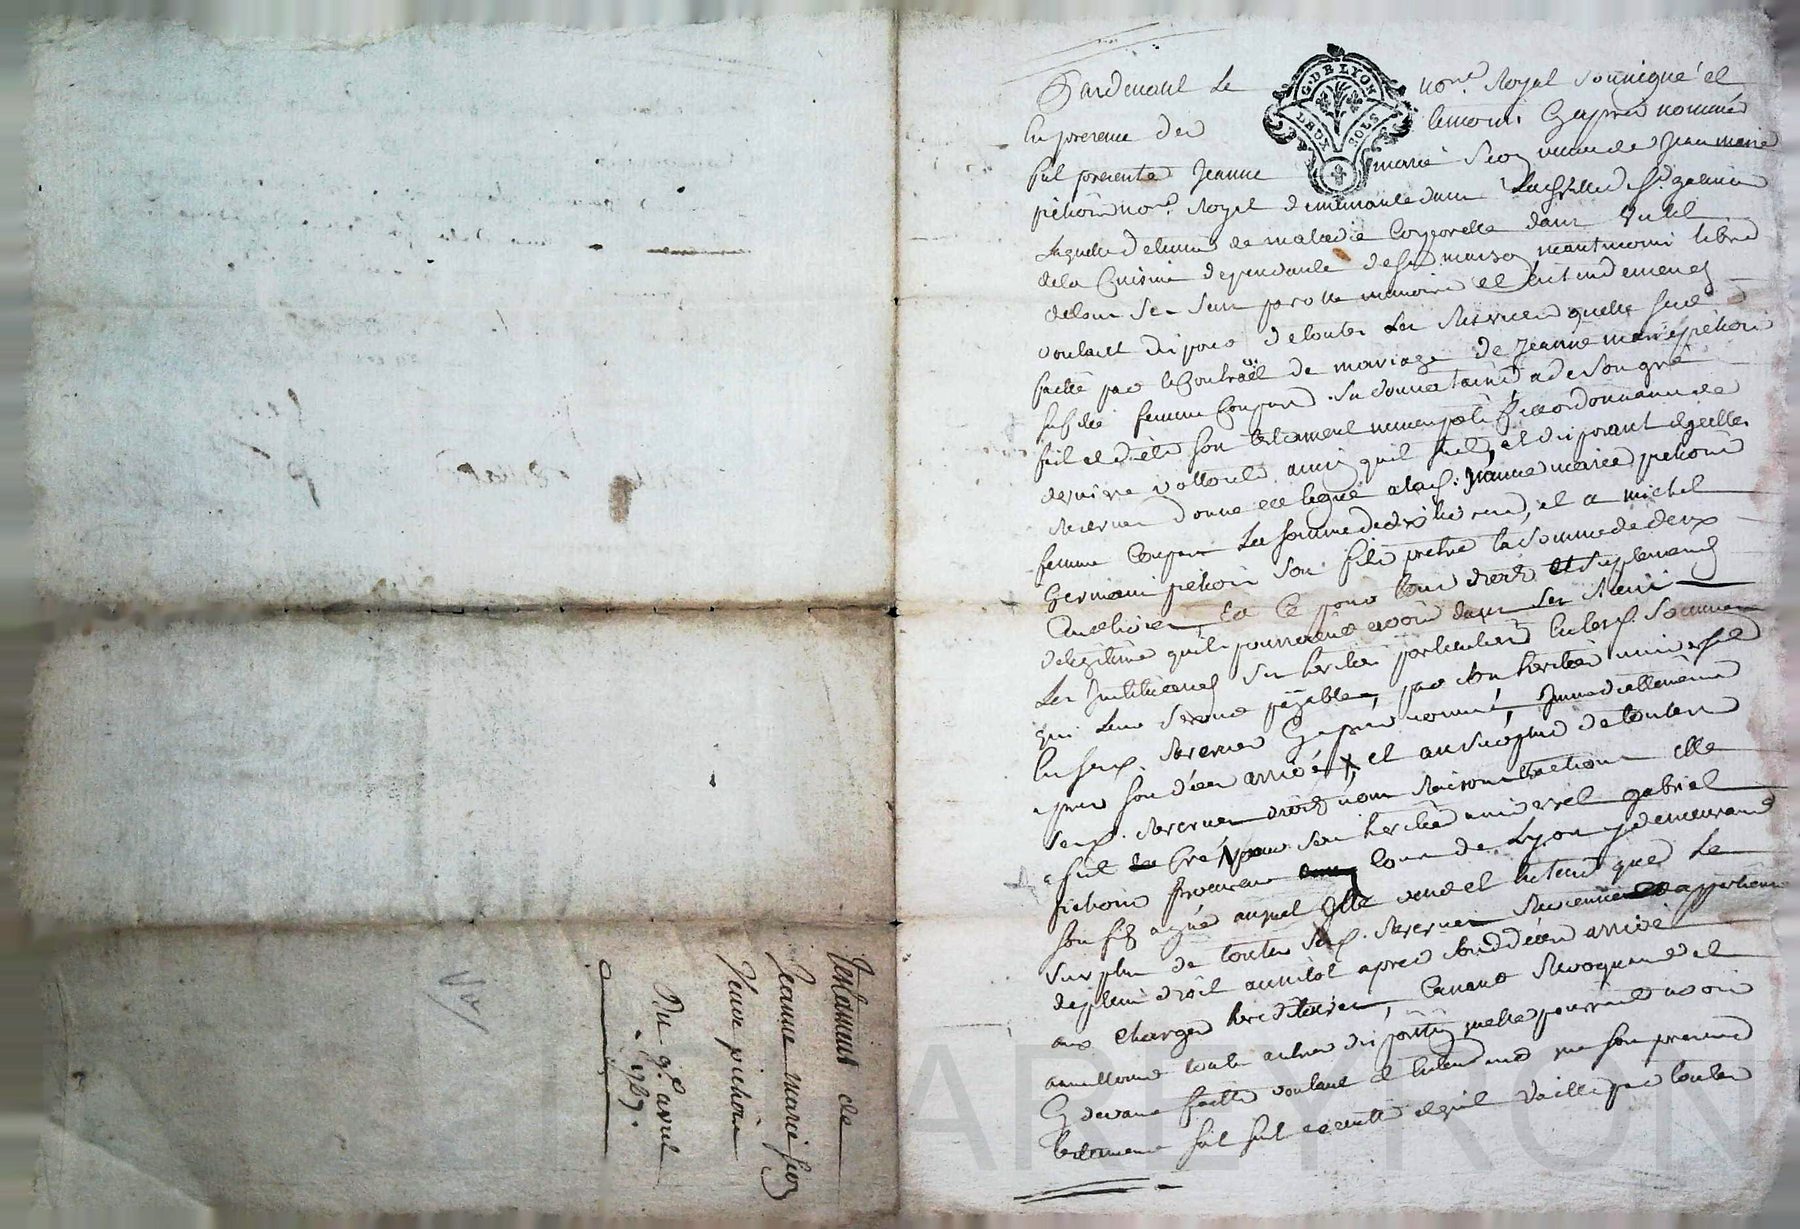 Testament de
Jeanne marie
Veuve pichoin
Du 9e. avril
1767.
G. DE LYON
DEUX SOLS
Pardevant Le nore. Royal soussigné et
En presence des temoins Cy apres nommés
fut presente Jeanne marie veuve de Jean marie
pichoin nore. Royal demeurante dans
Laquelle detenue de maladie Corporelle dans
de la Cuisine dependante de sa maison neantmoins libre
de tous ses sens parolle memoire et entendement
voulant disposer de toutes Les Reserves quelle
par le Contract de mariage de Jeanne marie pichoin
femme Coupat Sa donnataire a de Son gré
fait et dicté son testament nuncupatif et ordonnance de
derniere vollonté ainsy quil suit, et disposant desquelles
Reserves donne et legue a lad. Jeanne marie pichoin
femme Coupat La Somme de dix livres, et a michel
Germain pichoin son fils pretre la Somme de deux
Cent livres Et Ce pour tous droits et suplement
de legitime quils pourroient avoir dans Ses Biens
Les Instituant Ses heritiers particuliers En lesd. Sommes
qui leur seront payables par son heritier universel
Cy apres nommé, Immediattement
apres son deces arrivé, et au surplus de toutes
Sesd. Reserves droits noms Raisons et actions elle
a fait Créé pour son heritier universel gabriel
pichoin procureur Cour de Lyon y demeurant
son fils auquel Elle veut et entend que Le
Surplus de toutes Sesd. Reserves appartienne
de plein droit aussitot apres Sond. deces arrivé
aux Charges hereditaires, Cassant Revoquant et
annullant toute autres dispositions quelle pourroit avoir
Cy devant faitte voulant et entendant que son present
testament soit suivi executté et quil vaille par toutes
AREYRON